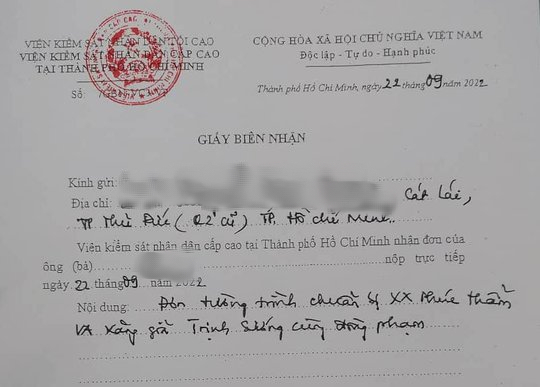 VIỆN KIỂM SÁT NHÂN DÂN TỐI CAO
VIỆN KIỂM SÁT NHÂN DÂN CẤP CAO
TẠI THÀNH PHỐ HỒ CHÍ MINH
Số:
CỘNG HÒA XÃ HỘI CHỦ NGHĨA VIỆT NAM
Độc lập - Tự do - Hạnh phúc
Thành phố Hồ Chí Minh, ngày 22 tháng 09 năm 2022
GIẤY BIÊN NHẬN
Kính gửi:
Địa chỉ: Cát Lái,
TP Thủ Đức (Q2 cũ) TP. Hồ Chí Minh..
Viện kiểm sát nhân dân cấp cao tại Thành phố Hồ Chí Minh nhân đơn của
ông (bà) nộp trực tiếp
ngày 22 tháng 09 năm 2022
Nội dung: Đơn tường trình chuẩn bị XX Phúc thẩm
VA Xăng giả Trịnh Sướng cùng đồng phạm